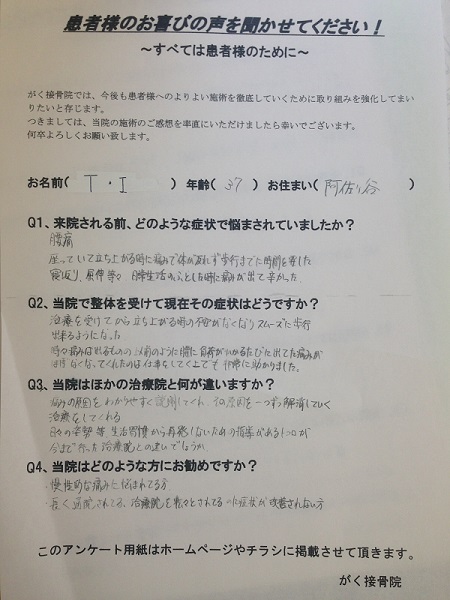 患者様のお喜びの声を聞かせてください！
～すべては患者様のために～
がく接骨院では、今後も患者様へのよりよい施術を徹底していくために取り組みを強化してまい
りたいと存じます。
つきましては、当院の施術のご感想を率直にいただけましたら幸いでございます。
何卒よろしくお願い致します。
お名前( T・I ) 年齢( 37 ) お住まい( 阿佐ヶ谷 )
Q1、来院される前、どのような症状で悩まされていましたか？
腰痛
座っていて立ち上がる時に痛みで体が起れず歩行までに時間を要した
寝返り、屈伸等々 日常生活のふとした時に痛みが出て辛かった。
Q2、当院で整体を受けて現在その症状はどうですか？
治療を受けてから立ち上がる時の不安がなくなりスムーズに歩行
出来るようになった
時々痛みは出るものの以前のように腰に負荷がかかるたびに出てた痛みが
ほぼなくなってくれたのは仕事をしていく上でも非常に助かりました。
Q3、当院はほかの治療院と何が違いますか？
痛みの原因をわかりやすく説明してくれ、その原因を一つずつ解消していく
治療をしてくれる
日々の姿勢等生活習慣から再発しないための指導があるトコロが
今まで行った治療院との違いでしょうか
Q4、当院はどのような方にお勧めですか？
・慢性的な痛みに悩まれてる方
・長く通院されてる、治療院を転々とされてるのに症状が改善されない方
このアンケート用紙はホームページやチラシに掲載させて頂きます。
がく接骨院